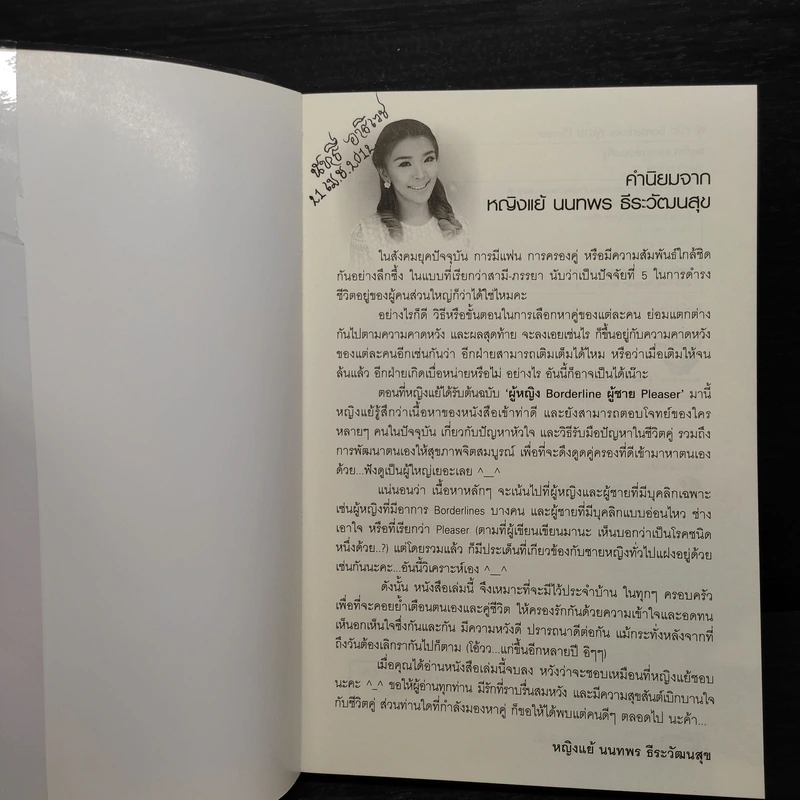 21 เม.ย. 2012
คำนิยมจาก
หญิงแย้ นนทพร ธีระวัฒนสุข
ในสังคมยุคปัจจุบัน การมีแฟน การครองคู่ หรือมีความสัมพันธ์ใกล้ชิด
กันอย่างลึกซึ้ง ในแบบที่เรียกว่าสามี-ภรรยา นับว่าเป็นปัจจัยที่ 5 ในการดำรง
ชีวิตอยู่ของผู้คนส่วนใหญ่ก็ว่าได้ใช่ไหมคะ
อย่างไรก็ดี วิธีหรือขั้นตอนในการเลือกหาคู่ของแต่ละคน ย่อมแตกต่าง
กันไปตามความคาดหวัง และผลสุดท้าย จะลงเอยเช่นไร ก็ขึ้นอยู่กับความคาดหวัง
ของแต่ละคนอีกเช่นกันว่า อีกฝ่ายสามารถเติมเต็มได้ไหม หรือว่าเมื่อเติมให้จน
ล้นแล้ว อีกฝ่ายเกิดเบื่อหน่ายหรือไม่ อย่างไร อันนี้ก็อาจเป็นได้เน๊าะ
ตอนที่หญิงแย้ได้รับต้นฉบับ 'ผู้หญิง Borderline ผู้ชาย Pleaser' มานี้
หญิงแย้รู้สึกว่าเนื้อหาของหนังสือเข้าท่าดี และยังสามารถตอบโจทย์ของใคร
หลายๆ คนในปัจจุบัน เกี่ยวกับปัญหาหัวใจ และวิธีรับมือปัญหาในชีวิตคู่ รวมถึง
การพัฒนาตนเองให้สุขภาพจิตสมบูรณ์ เพื่อที่จะดึงดูดคู่ครองที่ดีเข้ามาหาตนเอง
ด้วย...ฟังดูเป็นผู้ใหญ่เยอะเลย ^__^
แน่นอนว่า เนื้อหาหลักๆ จะเน้นไปที่ผู้หญิงและผู้ชายที่มีบุคลิกเฉพาะ
เช่นผู้หญิงที่มีอาการ Borderlines บางคน และผู้ชายที่มีบุคลิกแบบอ่อนไหว ช่าง
เอาใจ หรือที่เรียกว่า Pleaser (ตามที่ผู้เขียนเขียนมานะ เห็นบอกว่าเป็นโรคชนิด
หนึ่งด้วย..?) แต่โดยรวมแล้ว ก็มีประเด็นที่เกี่ยวข้องกับชายหญิงทั่วไปแฝงอยู่ด้วย
เช่นกันนะคะ...อันนี้วิเคราะห์เอง ^__^
ดังนั้น หนังสือเล่มนี้ จึงเหมาะที่จะมีไว้ประจำบ้าน ในทุกๆ ครอบครัว
เพื่อที่จะคอยย้ำเตือนตนเองและคู่ชีวิต ให้ครองรักกันด้วยความเข้าใจและอดทน
เห็นอกเห็นใจซึ่งกันและกัน มีความหวังดี ปรารถนาดีต่อกัน แม้กระทั่งหลังจากที่
ถึงวันต้องเลิกรากันไปก็ตาม (โอ้วว...แก่ขึ้นอีกหลายปี อิๆๆ)
เมื่อคุณได้อ่านหนังสือเล่มนี้จบลง หวังว่าจะชอบเหมือนที่หญิงแย้ชอบ
นะคะ ^_^ ขอให้ผู้อ่านทุกท่าน มีรักที่ราบรื่นสมหวัง และมีความสุขสันต์เบิกบานใจ
กับชีวิตคู่ ส่วนท่านใดที่กำลังมองหาคู่ ก็ขอให้ได้พบแต่คนดีๆ ตลอดไป นะค้า...
หญิงแย้ นนทพร ธีระวัฒนสุข